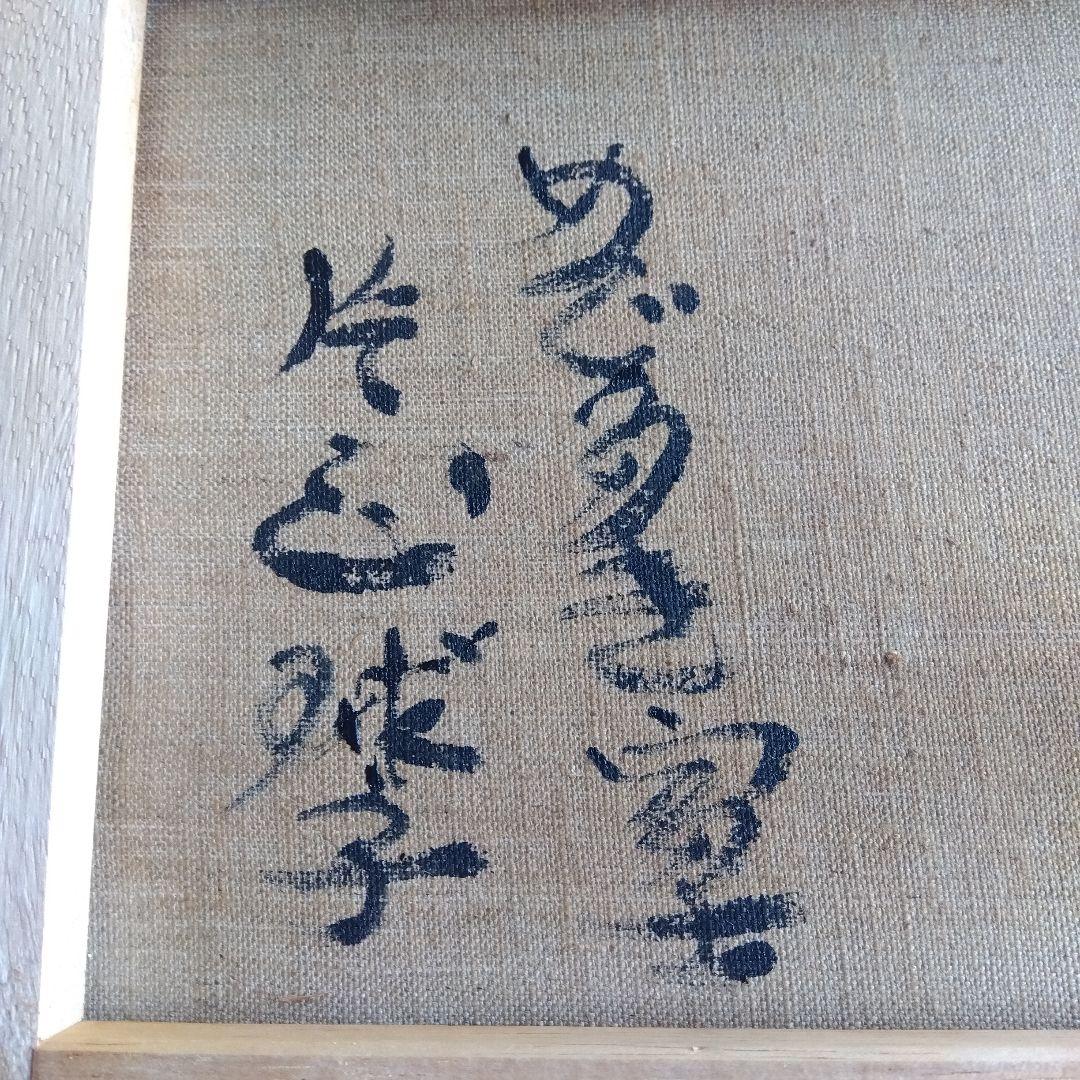 めでたき富士
片岡球子